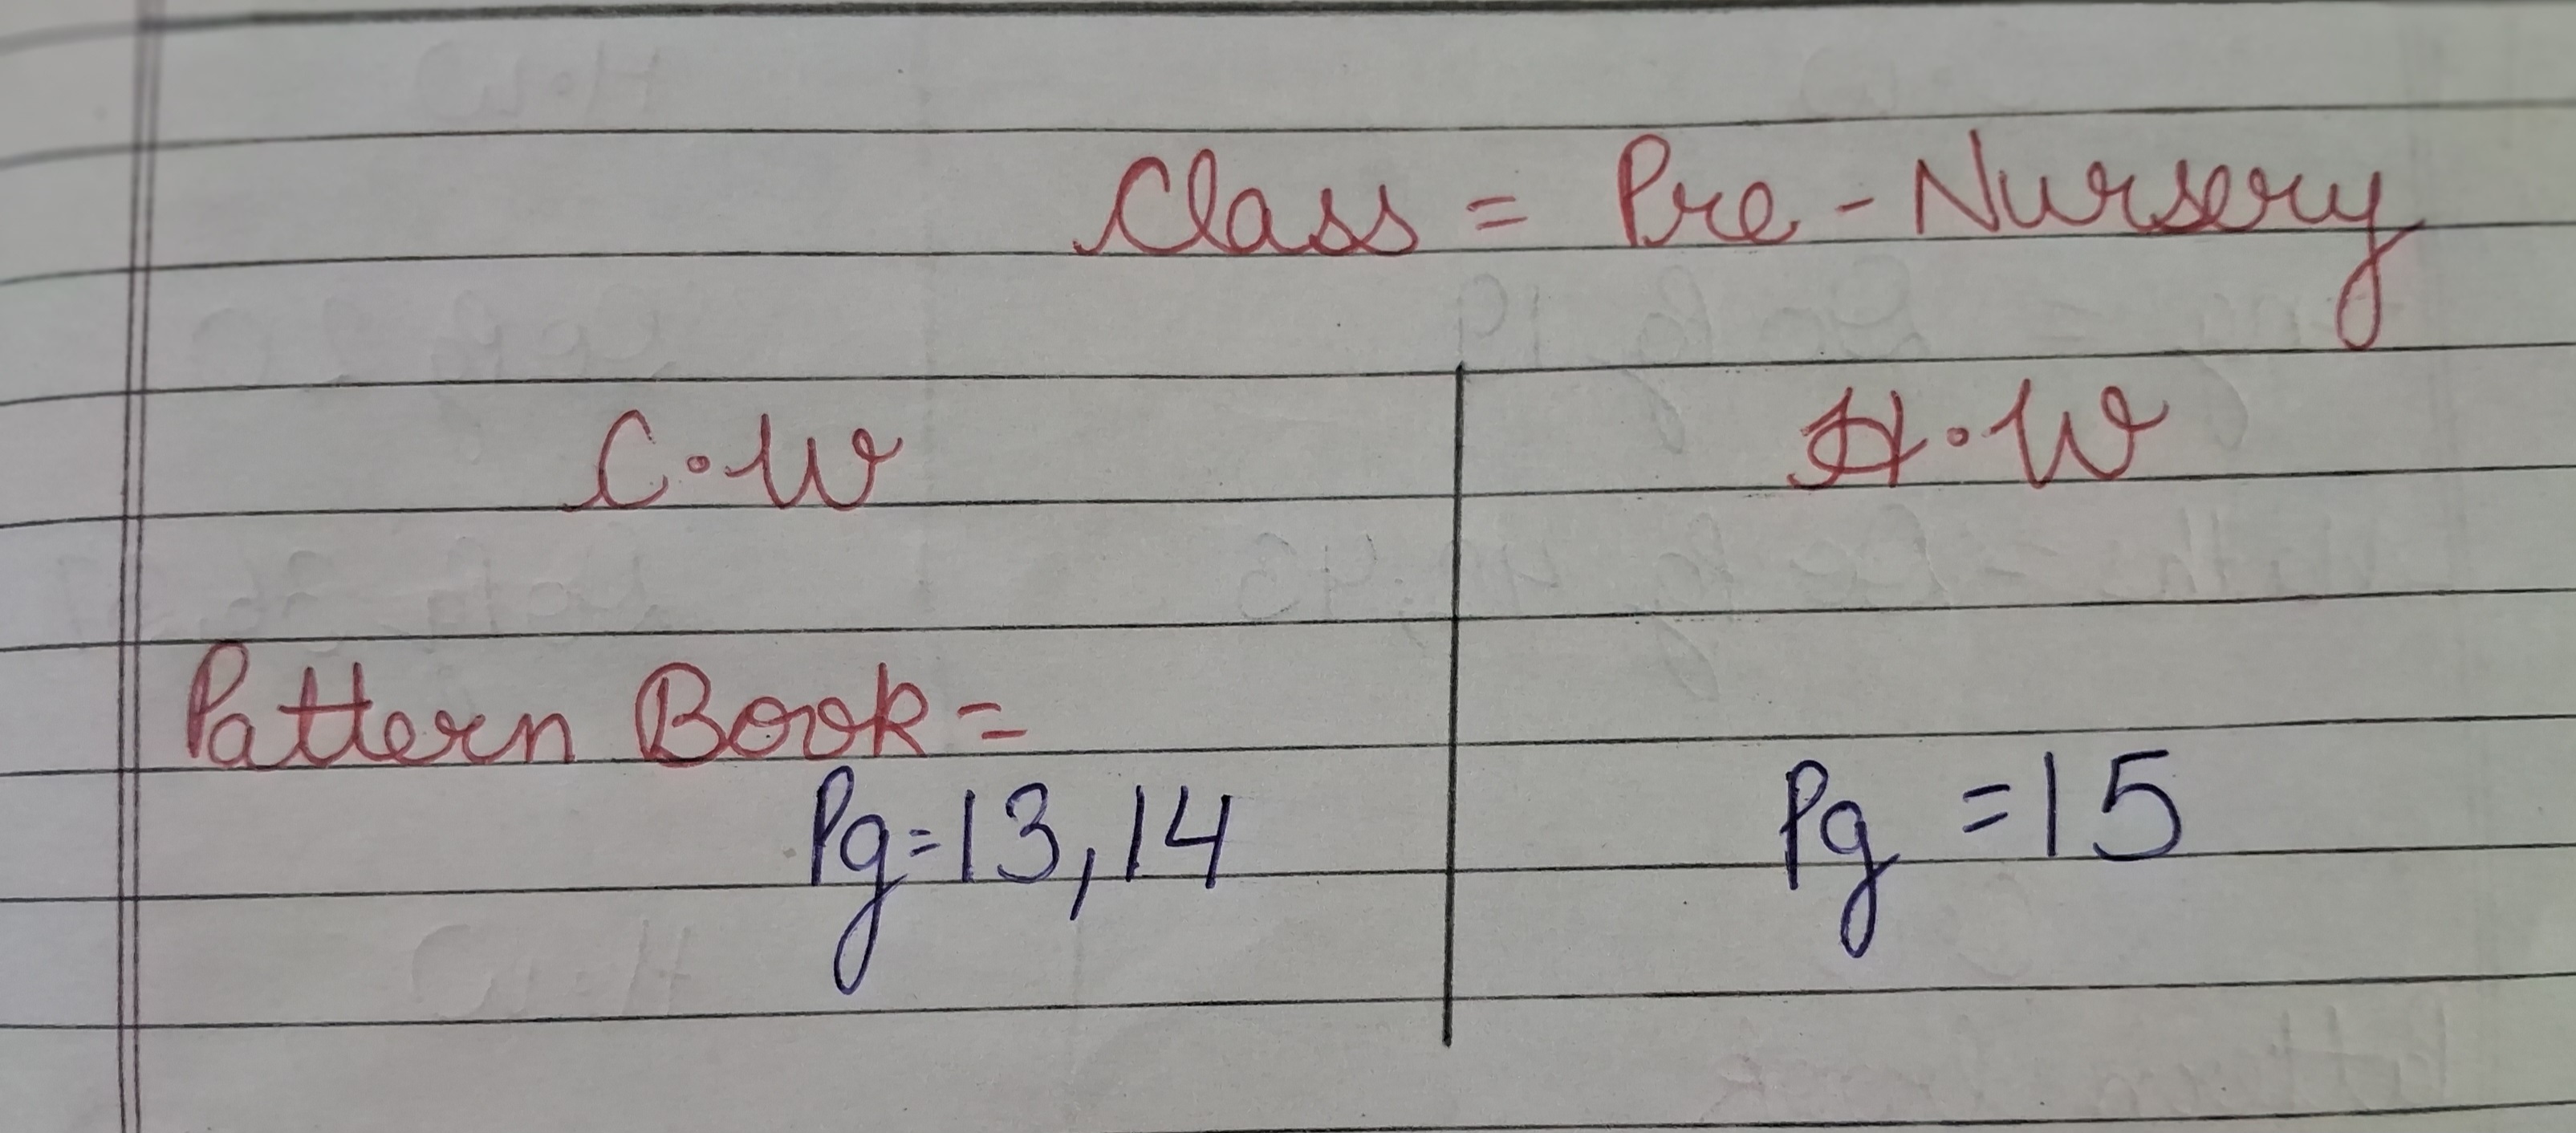 Class = Pre - Nursery
C.W H.W
Pattern Book =
Pg = 13, 14 Pg = 15